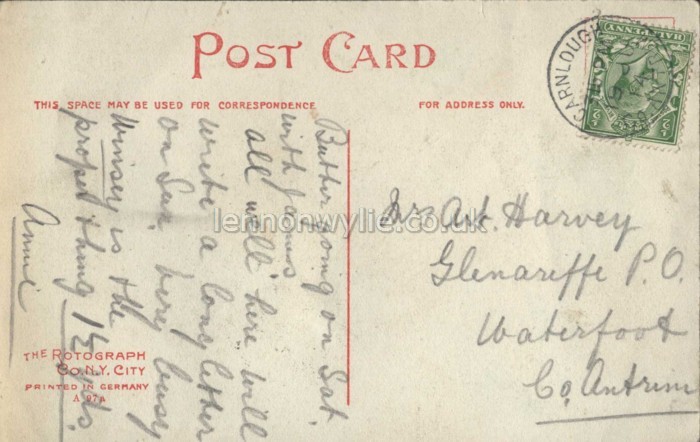 POST CARD
THIS SPACE MAY BE USED FOR CORRESPONDENCE
FOR ADDRESS ONLY.
CARNLOUGH
HALFPENNY
Butter going on Sat.
with James
all well here will
write a long letter
on Sun. very busy
Winsey is the
proper thing 1½ yds.
Annie
Mrs Art. Harvey
Glenariffe P.O.
Waterfoot
Co. Antrim
THE ROTOGRAPH
CO. N.Y. CITY
PRINTED IN GERMANY
A 97A
lennonwylie.co.uk